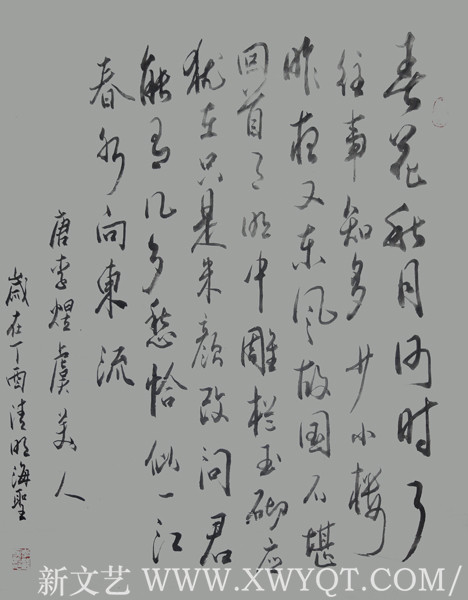 春花秋月何时了
往事知多少小楼
昨夜又东风故国不堪
回首月明中雕栏玉砌应
犹在只是朱颜改问君
能有几多愁恰似一江
春水向東流
唐李煜虞美人
歲在丁酉清明海聖
新文艺 WWW.XWYQT.COM/